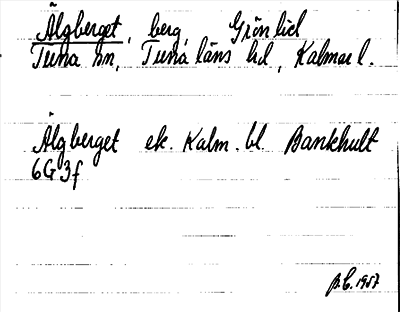 Älgberget, berg, Grönlid
Tuna sn, Tuna läns hd, Kalmar l.
Älgberget ek. Kalm. bl. Bankhult
6G3f
1957